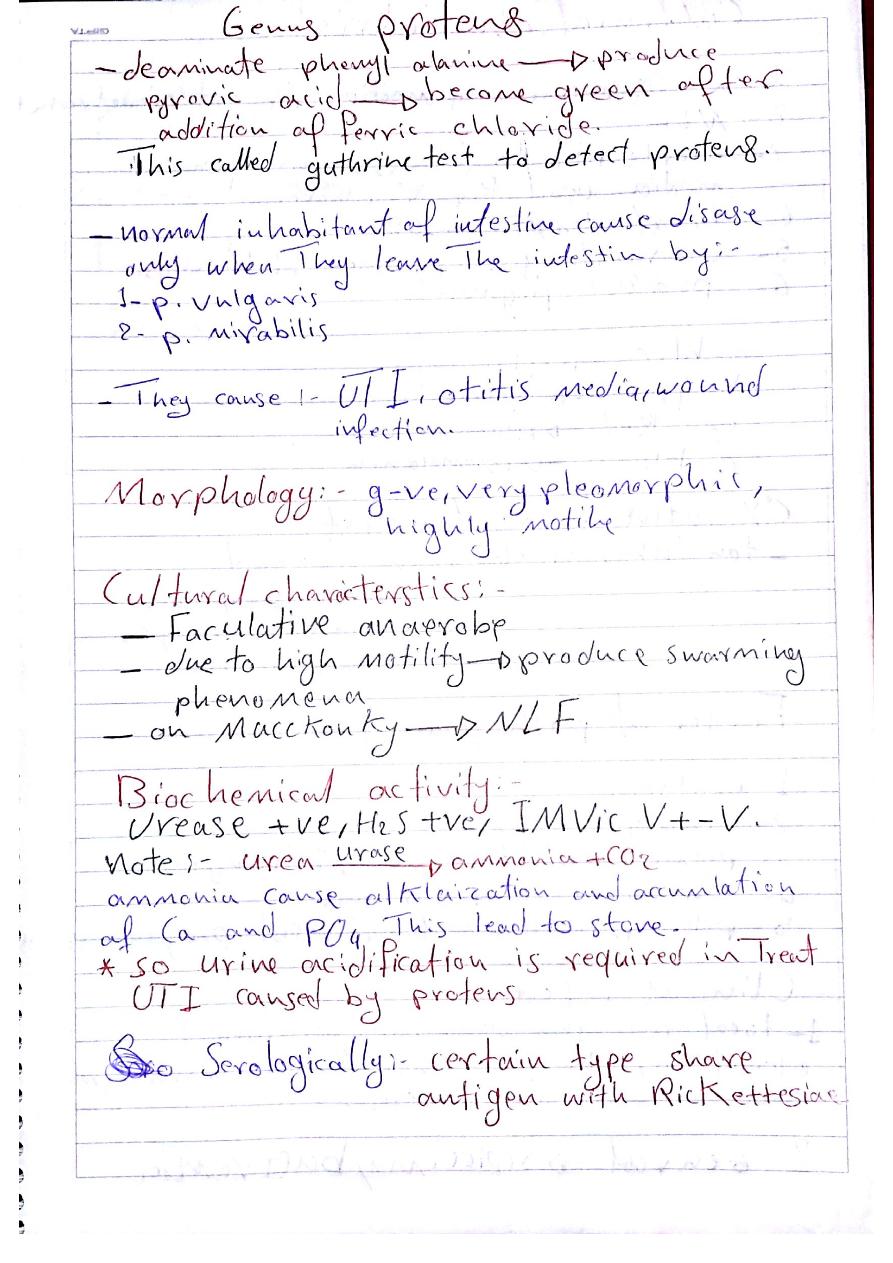 Genus proteus
- deaminate phenyl alanine → produce
pyrovic acid → become green after
addition of ferric chloride.
This called guthrine test to detect proteus.
- normal inhabitant of intestine cause disase
only when They leave The intestin by:-
1- p. vulgaris
2- p. mirabilis
- They cause :- UTI, otitis media, wound
infection.
Morphology:- g-ve, very pleomorphic,
highly motile
Cultural charácterstics:-
- Faculative anaerobe
- due to high motility → produce swarming
phenomena
- on Macckonky → NLF.
Biochemical activity:-
Urease +ve, H2S +ve, IMVic V+-V.
Note :- urea urase → ammonia + CO2
ammonia cause alklaization and accumlation
of Ca and PO4 This lead to stone.
* so urine acidification is required in Treat
UTI caused by proteus
Serologically:- certain type share
antigen with Rickettesiae